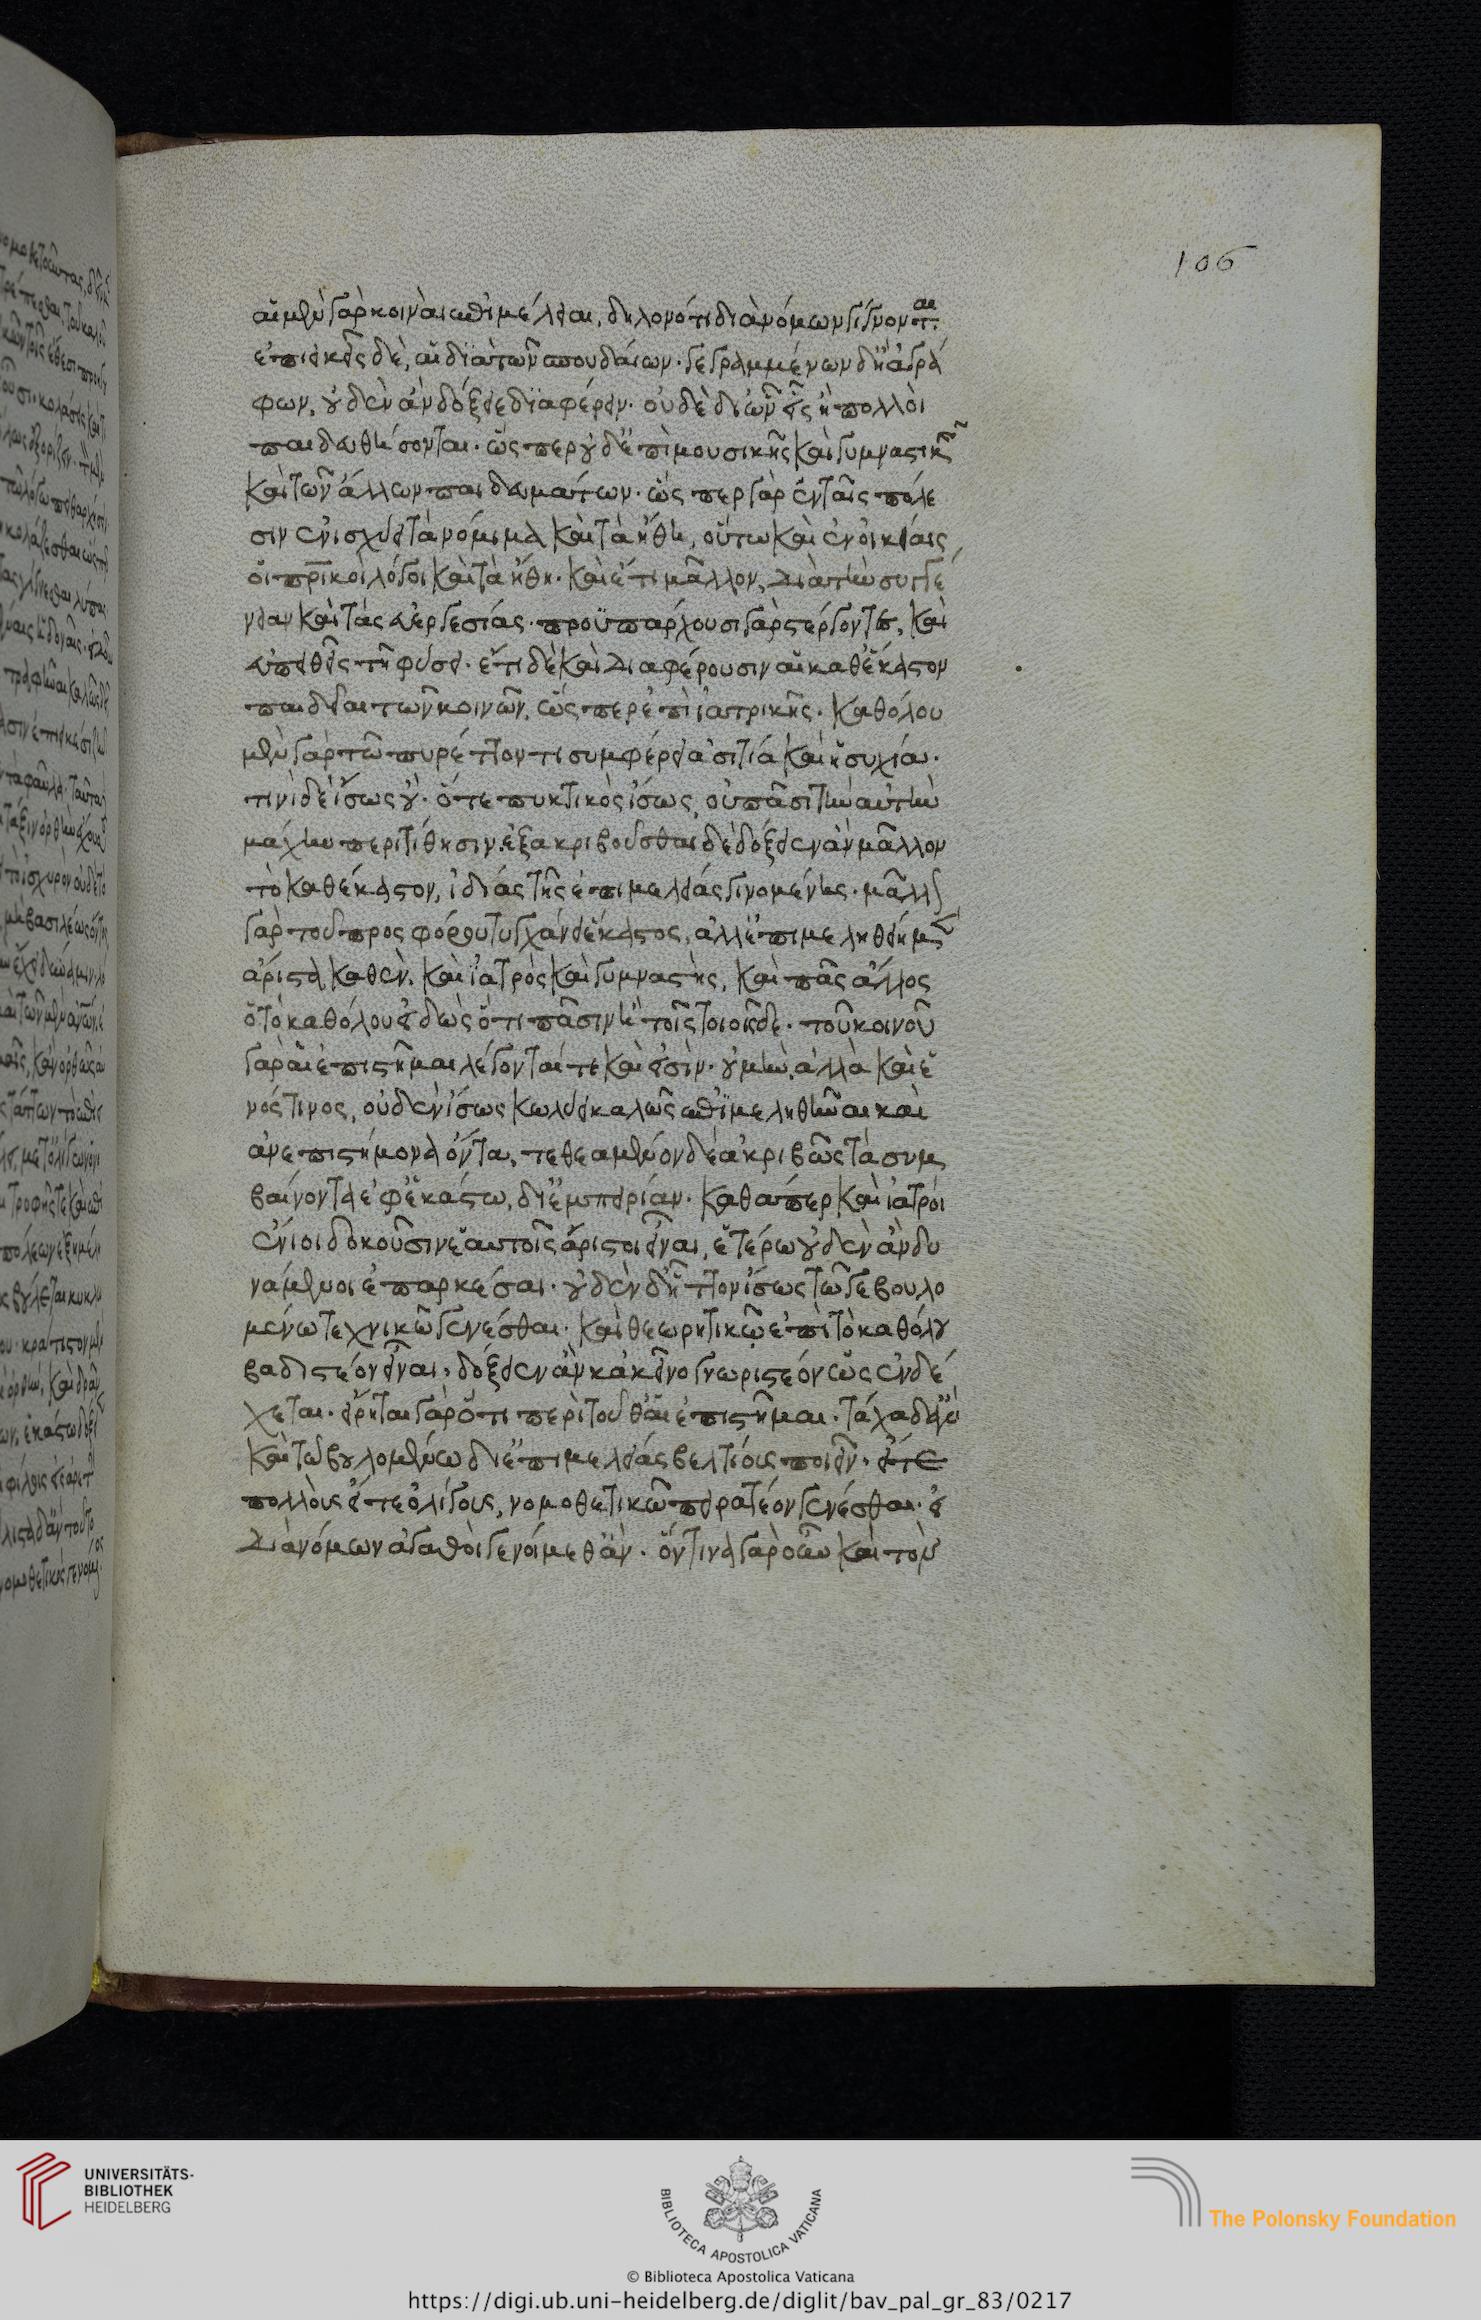 106
αἱ μὲν γὰρ κοιναὶ ἐπιμέλειαι, δηλονότι διὰ νόμων γίγνονται
ἐπιεικεῖς δὲ, αἱ διὰ τῶν σπουδαίων· γεγραμμένων δ' ἢ ἀγρά
φων, οὐδὲν ἂν δόξειε διαφέρειν· οὐδὲ δι' ὧν εἷς ἢ πολλοὶ
παιδευθήσονται· ὥσπερ οὐδ' ἐπὶ μουσικῆς καὶ γυμναστικῆς
καὶ τῶν ἄλλων παιδευμάτων· ὥσπερ γὰρ ἐν ταῖς πόλε
σιν ἐνισχύει τὰ νόμιμα καὶ τὰ ἤθη, οὕτω καὶ ἐν οἰκίαις
οἱ πρικοὶ λόγοι καὶ τὰ ἤθη· καὶ ἔτι μᾶλλον, διὰ τὴν συγγέ
νειαν καὶ τὰς εὐεργεσίας· προϋπάρχουσι γὰρ στέργοντες, καὶ
εὐπειθεῖς τῇ φύσει· ἔτι δὲ καὶ διαφέρουσιν αἱ καθ' ἕκαστον
παιδεῖαι τῶν κοινῶν, ὥσπερ ἐπὶ ἰατρικῆς· καθόλου
μὲν γὰρ τῶ πυρέττοντι συμφέρει ἀσιτία καὶ ἡσυχία·
τινὶ δὲ ἴσως οὐ· ὅ τε πυκτικὸς ἴσως, οὐ πᾶσι τὴν αὐτὴν
μάχην περιτίθησιν· ἐξακριβοῦσθαι δὲ δόξειεν ἂν μᾶλλον
τὸ καθέκαστον, ἰδίας τῆς ἐπιμελείας γινομένης· μᾶλλον
γὰρ τοῦ προσφόρου τυγχάνει ἕκαστος, ἀλλ' ἐπιμεληθείη μὲν
ἄριστα καθ' ἓν, καὶ ἰατρὸς καὶ γυμναστὴς, καὶ πᾶς ἄλλος
ὁ τὸ καθόλου εἰδὼς ὅτι πᾶσιν ἢ τοῖς τοιοῖσδε· τοῦ κοινοῦ
γὰρ αἱ ἐπιστῆμαι λέγονταί τε καὶ εἰσὶν· οὐ μὴν ἀλλὰ καὶ ἑ
νός τινος, οὐδὲν ἴσως κωλύει καλῶς ἐπιμεληθῆναι καὶ
ἀνεπιστήμονα ὄντα, τεθεαμένον δὲ ἀκριβῶς τὰ συμ
βαίνοντα ἐφ' ἑκάστω, δι' ἐμπειρίαν· καθάπερ καὶ ἰατροὶ
ἔνιοι δοκοῦσιν ἑαυτοῖς ἄριστοι εἶναι, ἑτέρω οὐδὲν ἂν δυ
νάμενοι ἐπαρκέσαι· οὐδὲν δ' ἧττον ἴσως τῶ γε βουλο
μένω τεχνικῶ γενέσθαι· καὶ θεωρητικῶ ἐπὶ τὸ καθόλου
βαδιστέον εἶναι, δόξειεν ἂν κἀκεῖνο γνωριστέον ὡς ἐνδέ
χεται· εἴρηται γὰρ ὅτι περὶ τοῦθ' αἱ ἐπιστῆμαι· τάχα δὲ
καὶ τῶ βουλομένω δι' ἐπιμελείας βελτίους ποιεῖν· εἴτε
πολλοὺς εἴτε ὀλίγους, νομοθετικῶ πειρατέον γενέσθαι· εἰ
διὰ νόμων ἀγαθοὶ γενοίμεθ' ἄν· ὅντινα γὰρ οὖν καὶ τὸν
UNIVERSITÄTS-
BIBLIOTHEK
HEIDELBERG
BIBLIOTECA APOSTOLICA VATICANA
The Polonsky Foundation
© Biblioteca Apostolica Vaticana
https://digi.ub.uni-heidelberg.de/diglit/bav_pal_gr_83/0217